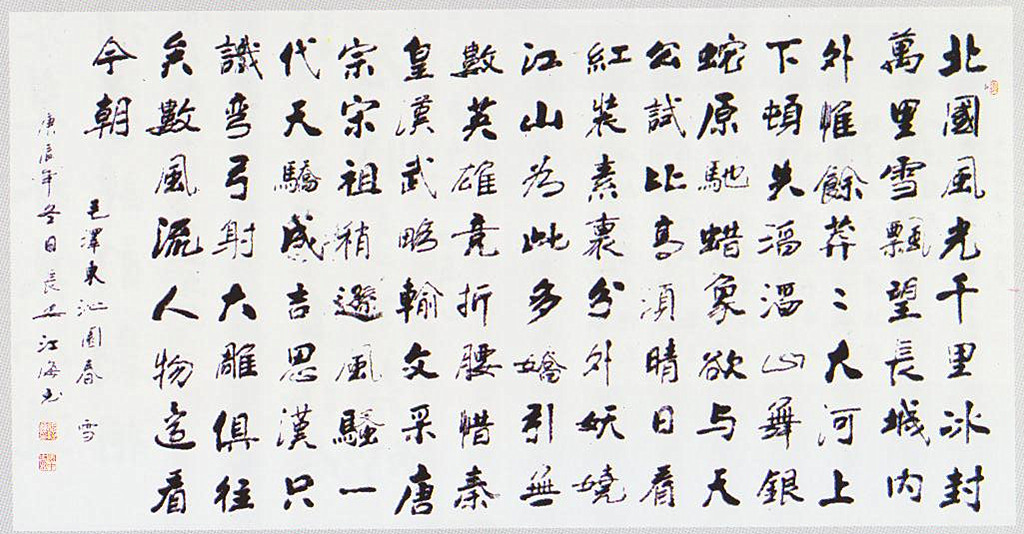 北國風光千里冰封
萬里雪飄望長城內
外惟餘莽〻大河上
下頓失滔滔山舞銀
蛇原馳蜡象欲与天
公試比高須晴日看
紅裝素裹分外妖嬈
江山為此多嬌引無
數英雄竞折腰惜秦
皇漢武略輸文采唐
宗宋祖稍遜風騷一
代天驕成吉思漢只
識弯弓射大雕俱往
矣數風流人物還看
今朝
毛澤東沁園春雪
庚辰年冬日長安江海